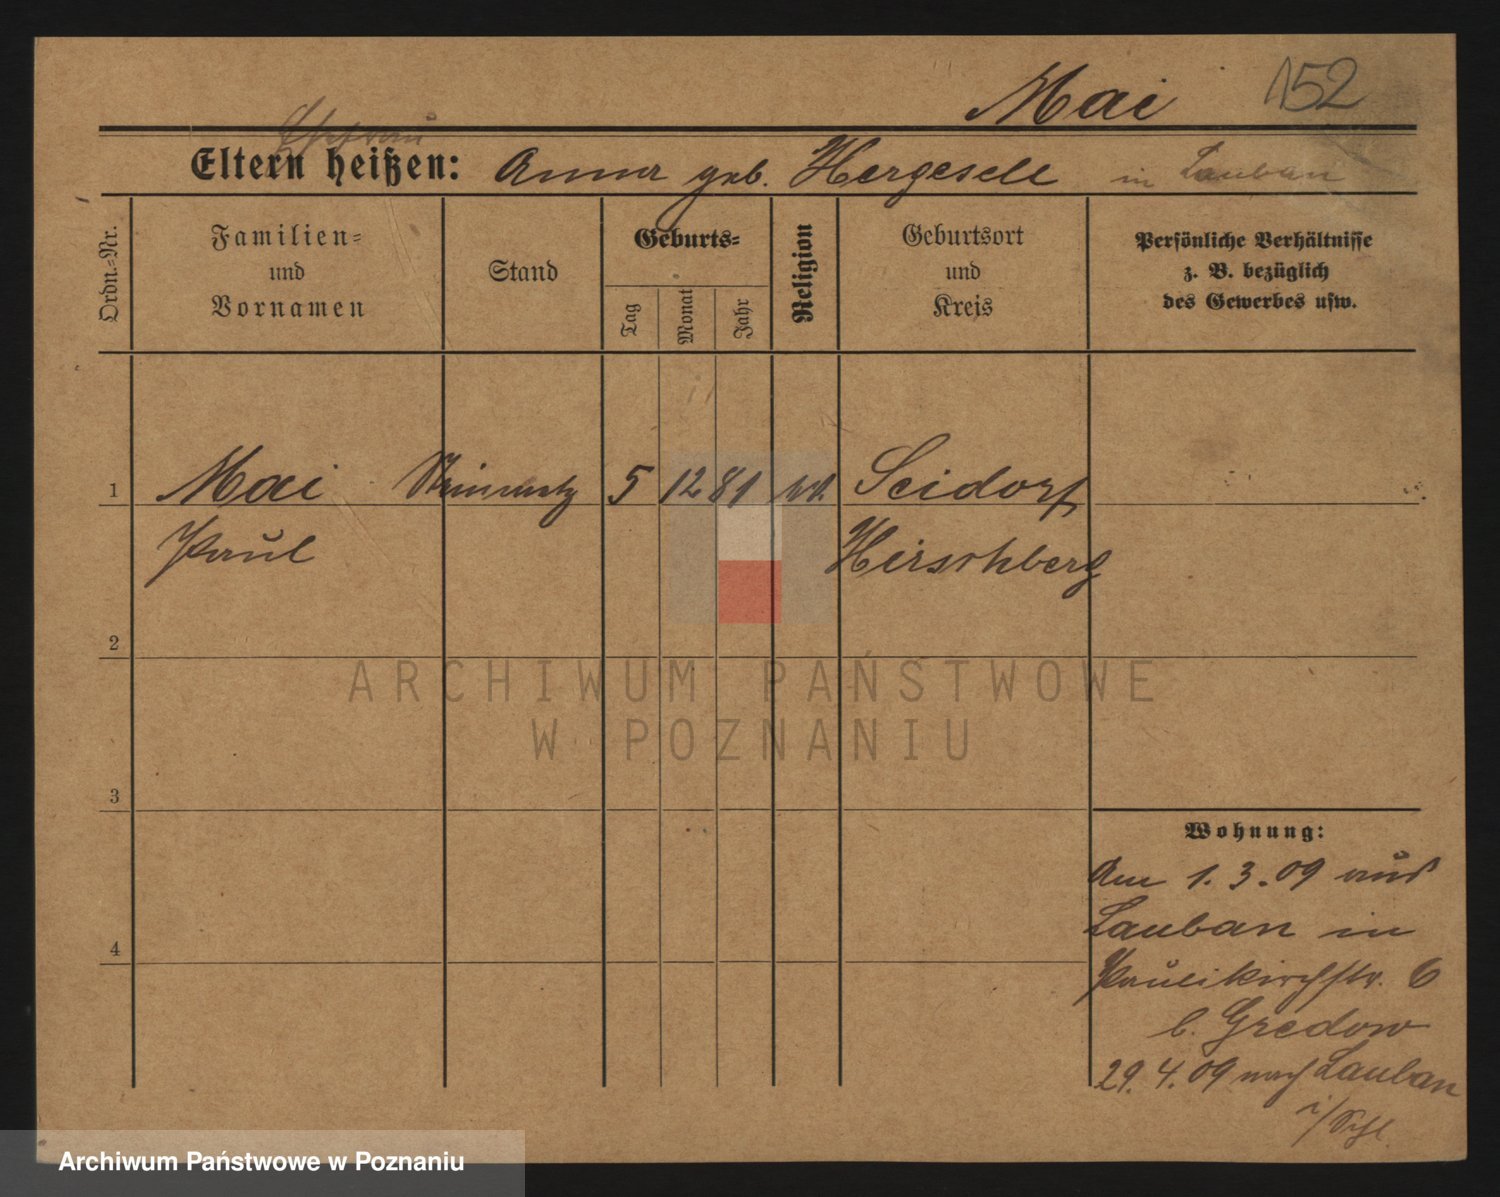 Mai 152
Ehefrau
Eltern heißen: Anna geb. Hergesell in Lauban
Ordn.-Nr.
Familien-
und
Vornamen
Stand
Geburts-
Tag
Monat
Jahr
Religion
Geburtsort
und
Kreis
Persönliche Verhältnisse
z. B. bezüglich
des Gewerbes usw.
1 Mai Steinmetz 5 12 81 Seidorf
Paul Hirschberg
2
3
4
Wohnung:
Am 1.3.09 aus
Lauban in
Paulikirchstr. 6
b. Gredow
29.4.09 nach Lauban
i/Schl.
ARCHIWUM PAŃSTWOWE
W POZNANIU
Archiwum Państwowe w Poznaniu